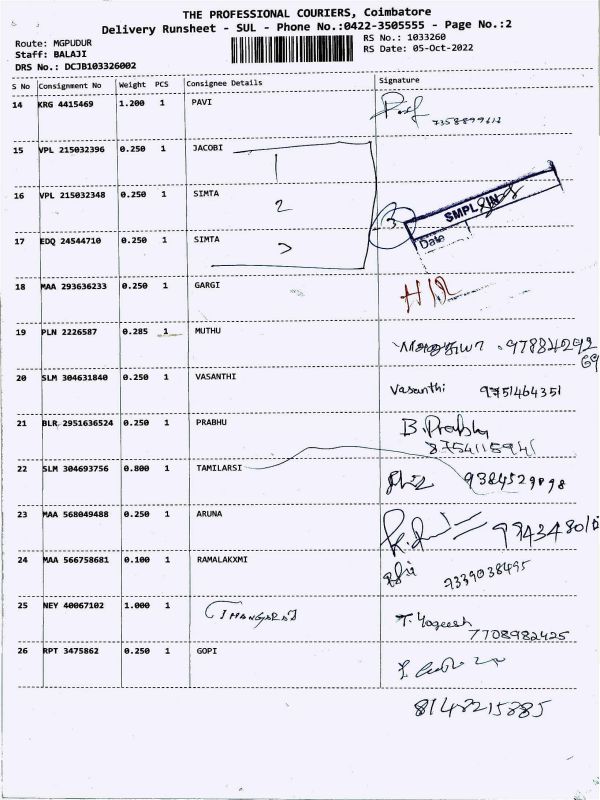 THE PROFESSIONAL COURIERS, Coimbatore
Delivery Runsheet - SUL - Phone No.:0422-3505555 - Page No.:2
Route: MGPUDUR
RS No.: 1033260
Staff: BALAJI
RS Date: 05-Oct-2022
DRS No.: DCJB103326002
S No Consignment No Weight PCS Consignee Details Signature
14 KRG 4415469 1.200 1 PAVI
15 VPL 215032396 0.250 1 JACOBI
1
16 VPL 215032348 0.250 1 SIMTA
2
3
SMPL
IN
17 EDQ 24544710 0.250 1 SIMTA
3
Date
18 MAA 293636233 0.250 1 GARGI
19 PLN 2226587 0.285 1 MUTHU
20 SLM 304631840 0.250 1 VASANTHI Vasanthi 9751464351
21 BLR 2951636524 0.250 1 PRABHU B. Prabhu
22 SLM 304693756 0.800 1 TAMILARSI 9384529898
23 MAA 568049488 0.250 1 ARUNA
24 MAA 566758681 0.100 1 RAMALAKXMI 7339038495
25 NEY 40067102 1.000 1 THANGARAJ T. Yogeesh
7708982425
26 RPT 3475862 0.250 1 GOPI
8148215885